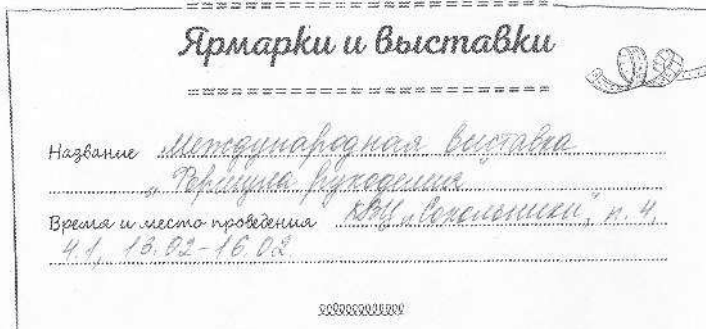 Ярмарки и выставки
Название Международная выставка
„ Формула рукоделия
Время и место проведения КВЦ „Сокольники“, п. 4,
4.1, 13.02-16.02